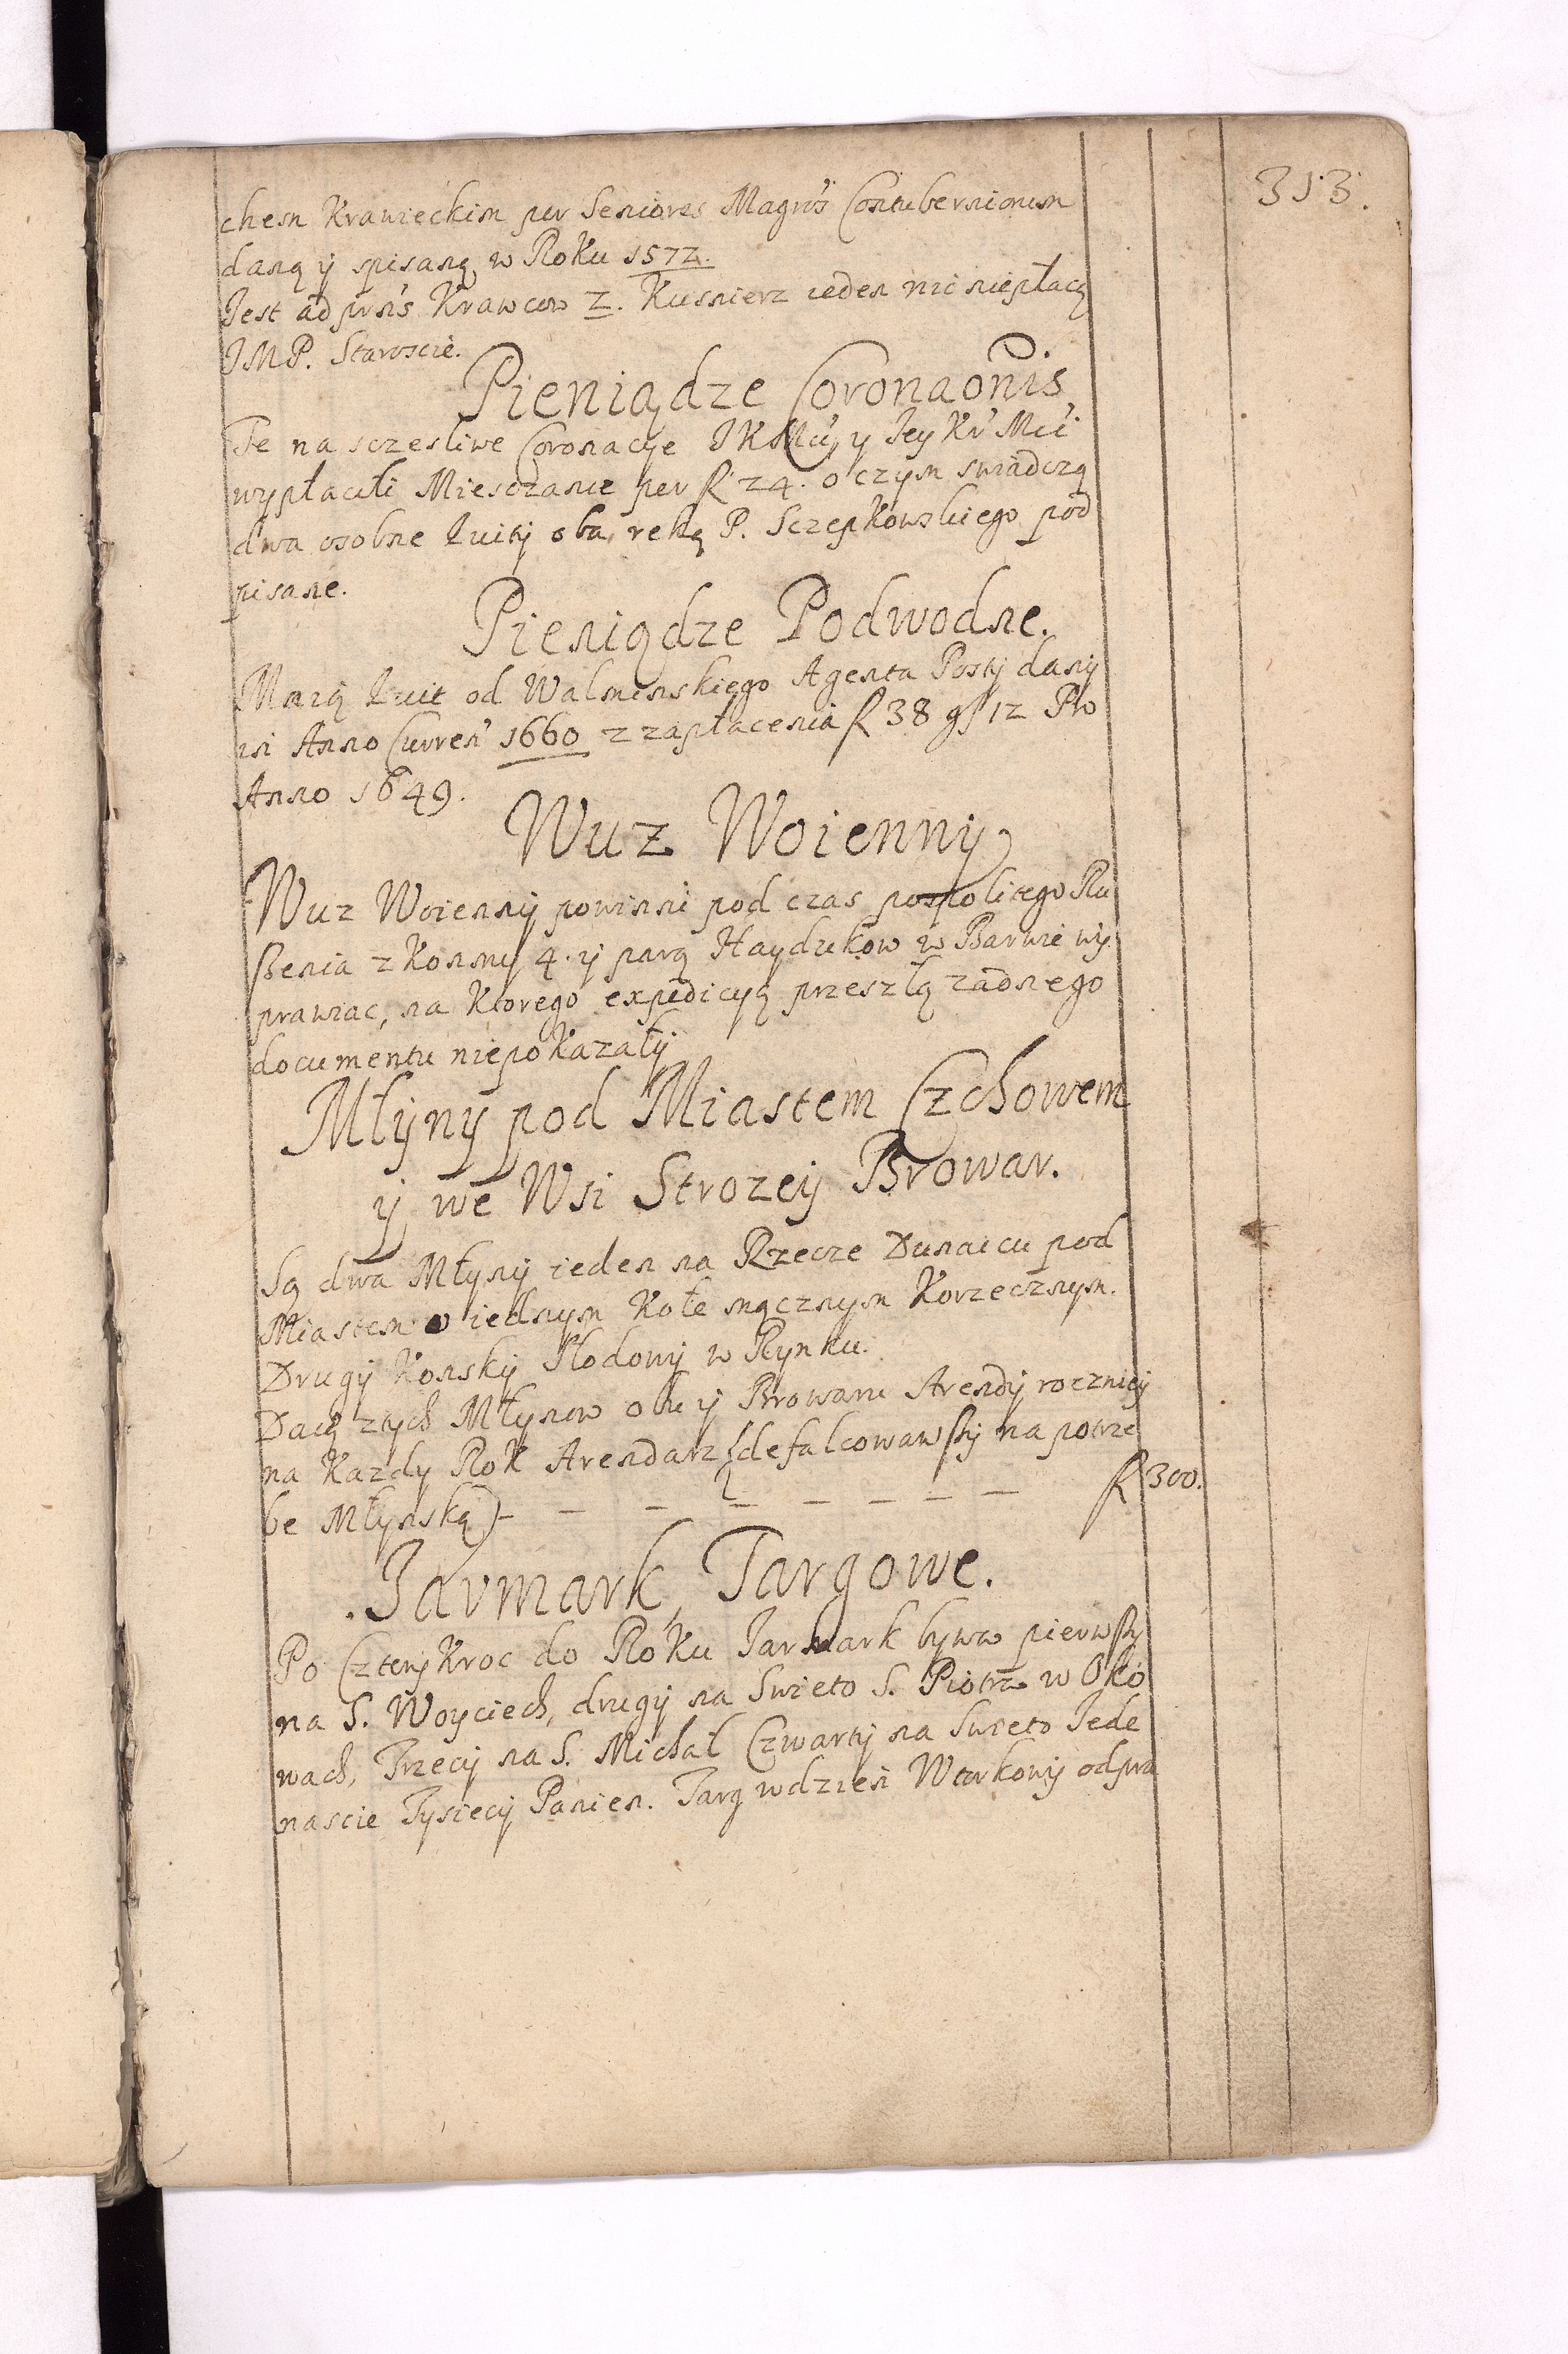 313.
chem Krawieckim per Seniores Magrū Contubernionum
daną y spisaną w Roku 1572.
Jest ad prns Krawcow 2. Kusnierz ieden nic niepłacą
JMP. Staroscie.
Pieniądze Coronaonis
Te na sczesliwe Coronacye JKMci, y Jey Kr Mci
wypłacili Miesczanie per f 24. o czym swiadczą
dwa osobne kwity oba, reką P. Sczepkowskiego pod
pisane.
Pieniądze Podwodne.
Maią kwit od Walminskiego Agenta Posty dany
ni Anno Curren 1660 z zapłacenia f 38 gſ 12 Pro
Anno 1649.
Wuz Woienny
Wuz Woienny powinni pod czas pospolitego Ru
ßenia z Konmy 4. y parą Haydukow w Barwie wy
prawiac, na Ktorego expedicyą przeszlą zadnego
documentu niepokazały
Młyny pod Miastem Czchowem
y we Wsi Strozey Browar.
Są dwa Młyny ieden na Rzecze Dunaicu pod
Miastem o iednym Kole mącznym Korzecznym.
Drugy Konsky Słodowy w Rynku.
Daią z tych Młynow obu y Browaru Arendy roczniey
na Kazdy Rok Arendarz (defalcowawſzy na potrze
be Młynską) - - - - - - - - f 300.
Jarmark, Targowe.
Po Cztery Kroc do Roku Jarmark bywa pierwſzy
na S. Woyciech, drugy na Swieto S. Piotra w Oko
wach, Trzecy na S. Michał Czwarty na Swieto Jede
nascie Tysiecy Panien. Targ wdzien Wtorkowy odpra